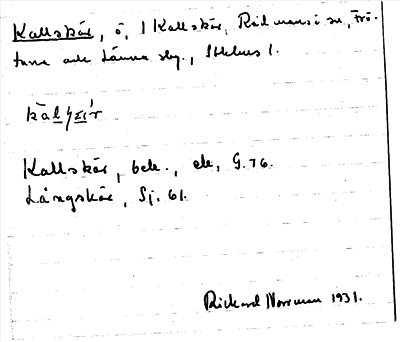 Kallskär, ö, 1 Kallskär, Rådmansö sn, Frö-
tuna och Länna skg., Sthlms l.
Kallskär, beb., ek, G. 76.
Långskär, Sj. 61.
Rickard Norrman 1931.